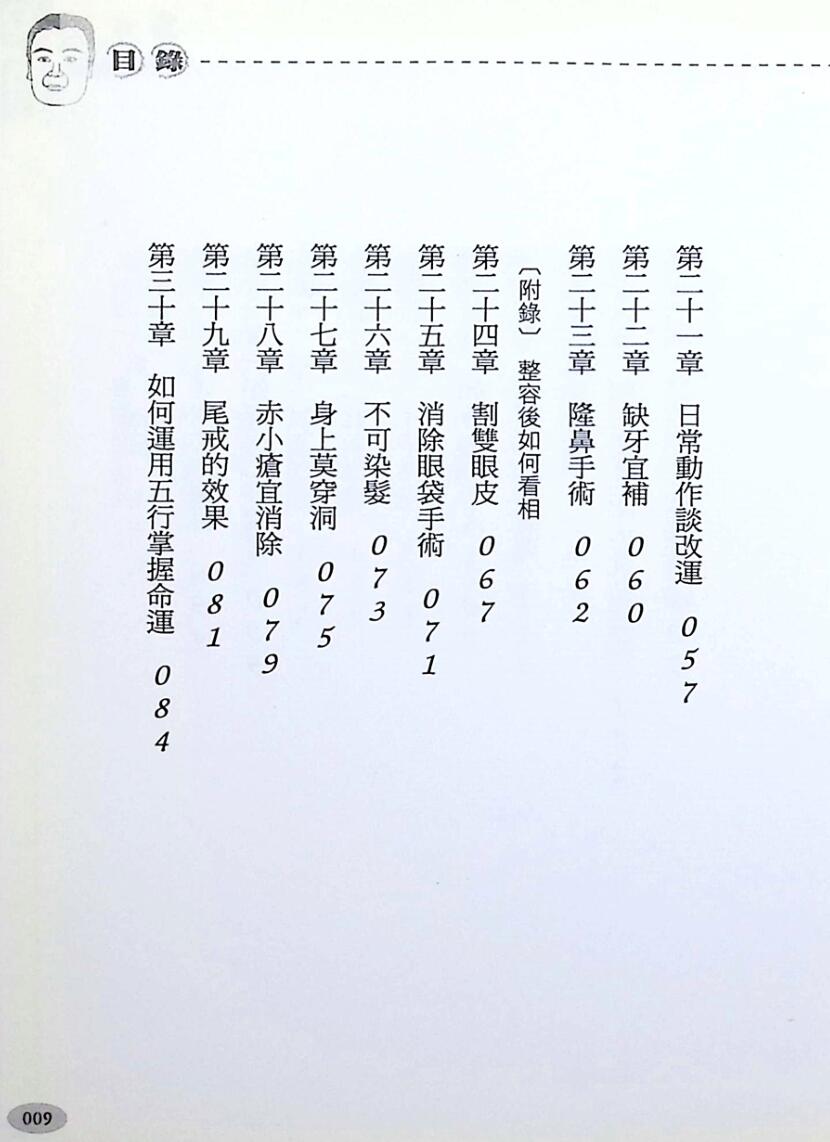 目錄
第二十一章 日常動作談改運 057
第二十二章 缺牙宜補 060
第二十三章 隆鼻手術 062
〔附錄〕 整容後如何看相
第二十四章 割雙眼皮 067
第二十五章 消除眼袋手術 071
第二十六章 不可染髮 073
第二十七章 身上莫穿洞 075
第二十八章 赤小瘡宜消除 079
第二十九章 尾戒的效果 081
第三十章 如何運用五行掌握命運 084
009